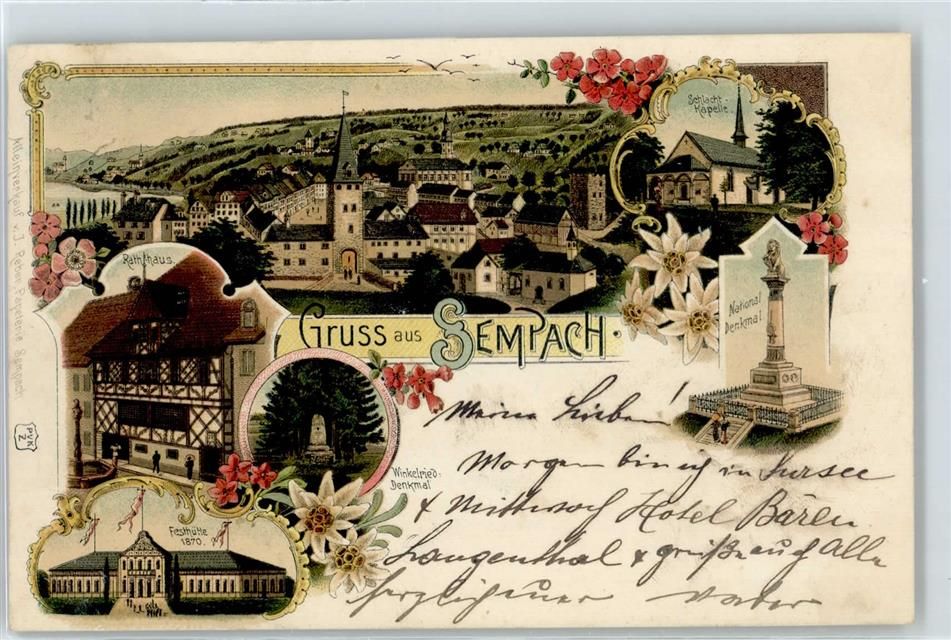 Schlacht-
Kapelle.
Rathhaus.
National
Denkmal
Gruss aus Sempach.
Winkelried-
Denkmal
Festhütte
1870.
Alleinverkauf v. J. Reber, Papeterie Sempach
PVK
Z
Meine Lieben!
Morgen bin ich in Sursee
& Mittwoch Hotel Bären
Langenthal & grüße euch Alle
herzlich euer Vater